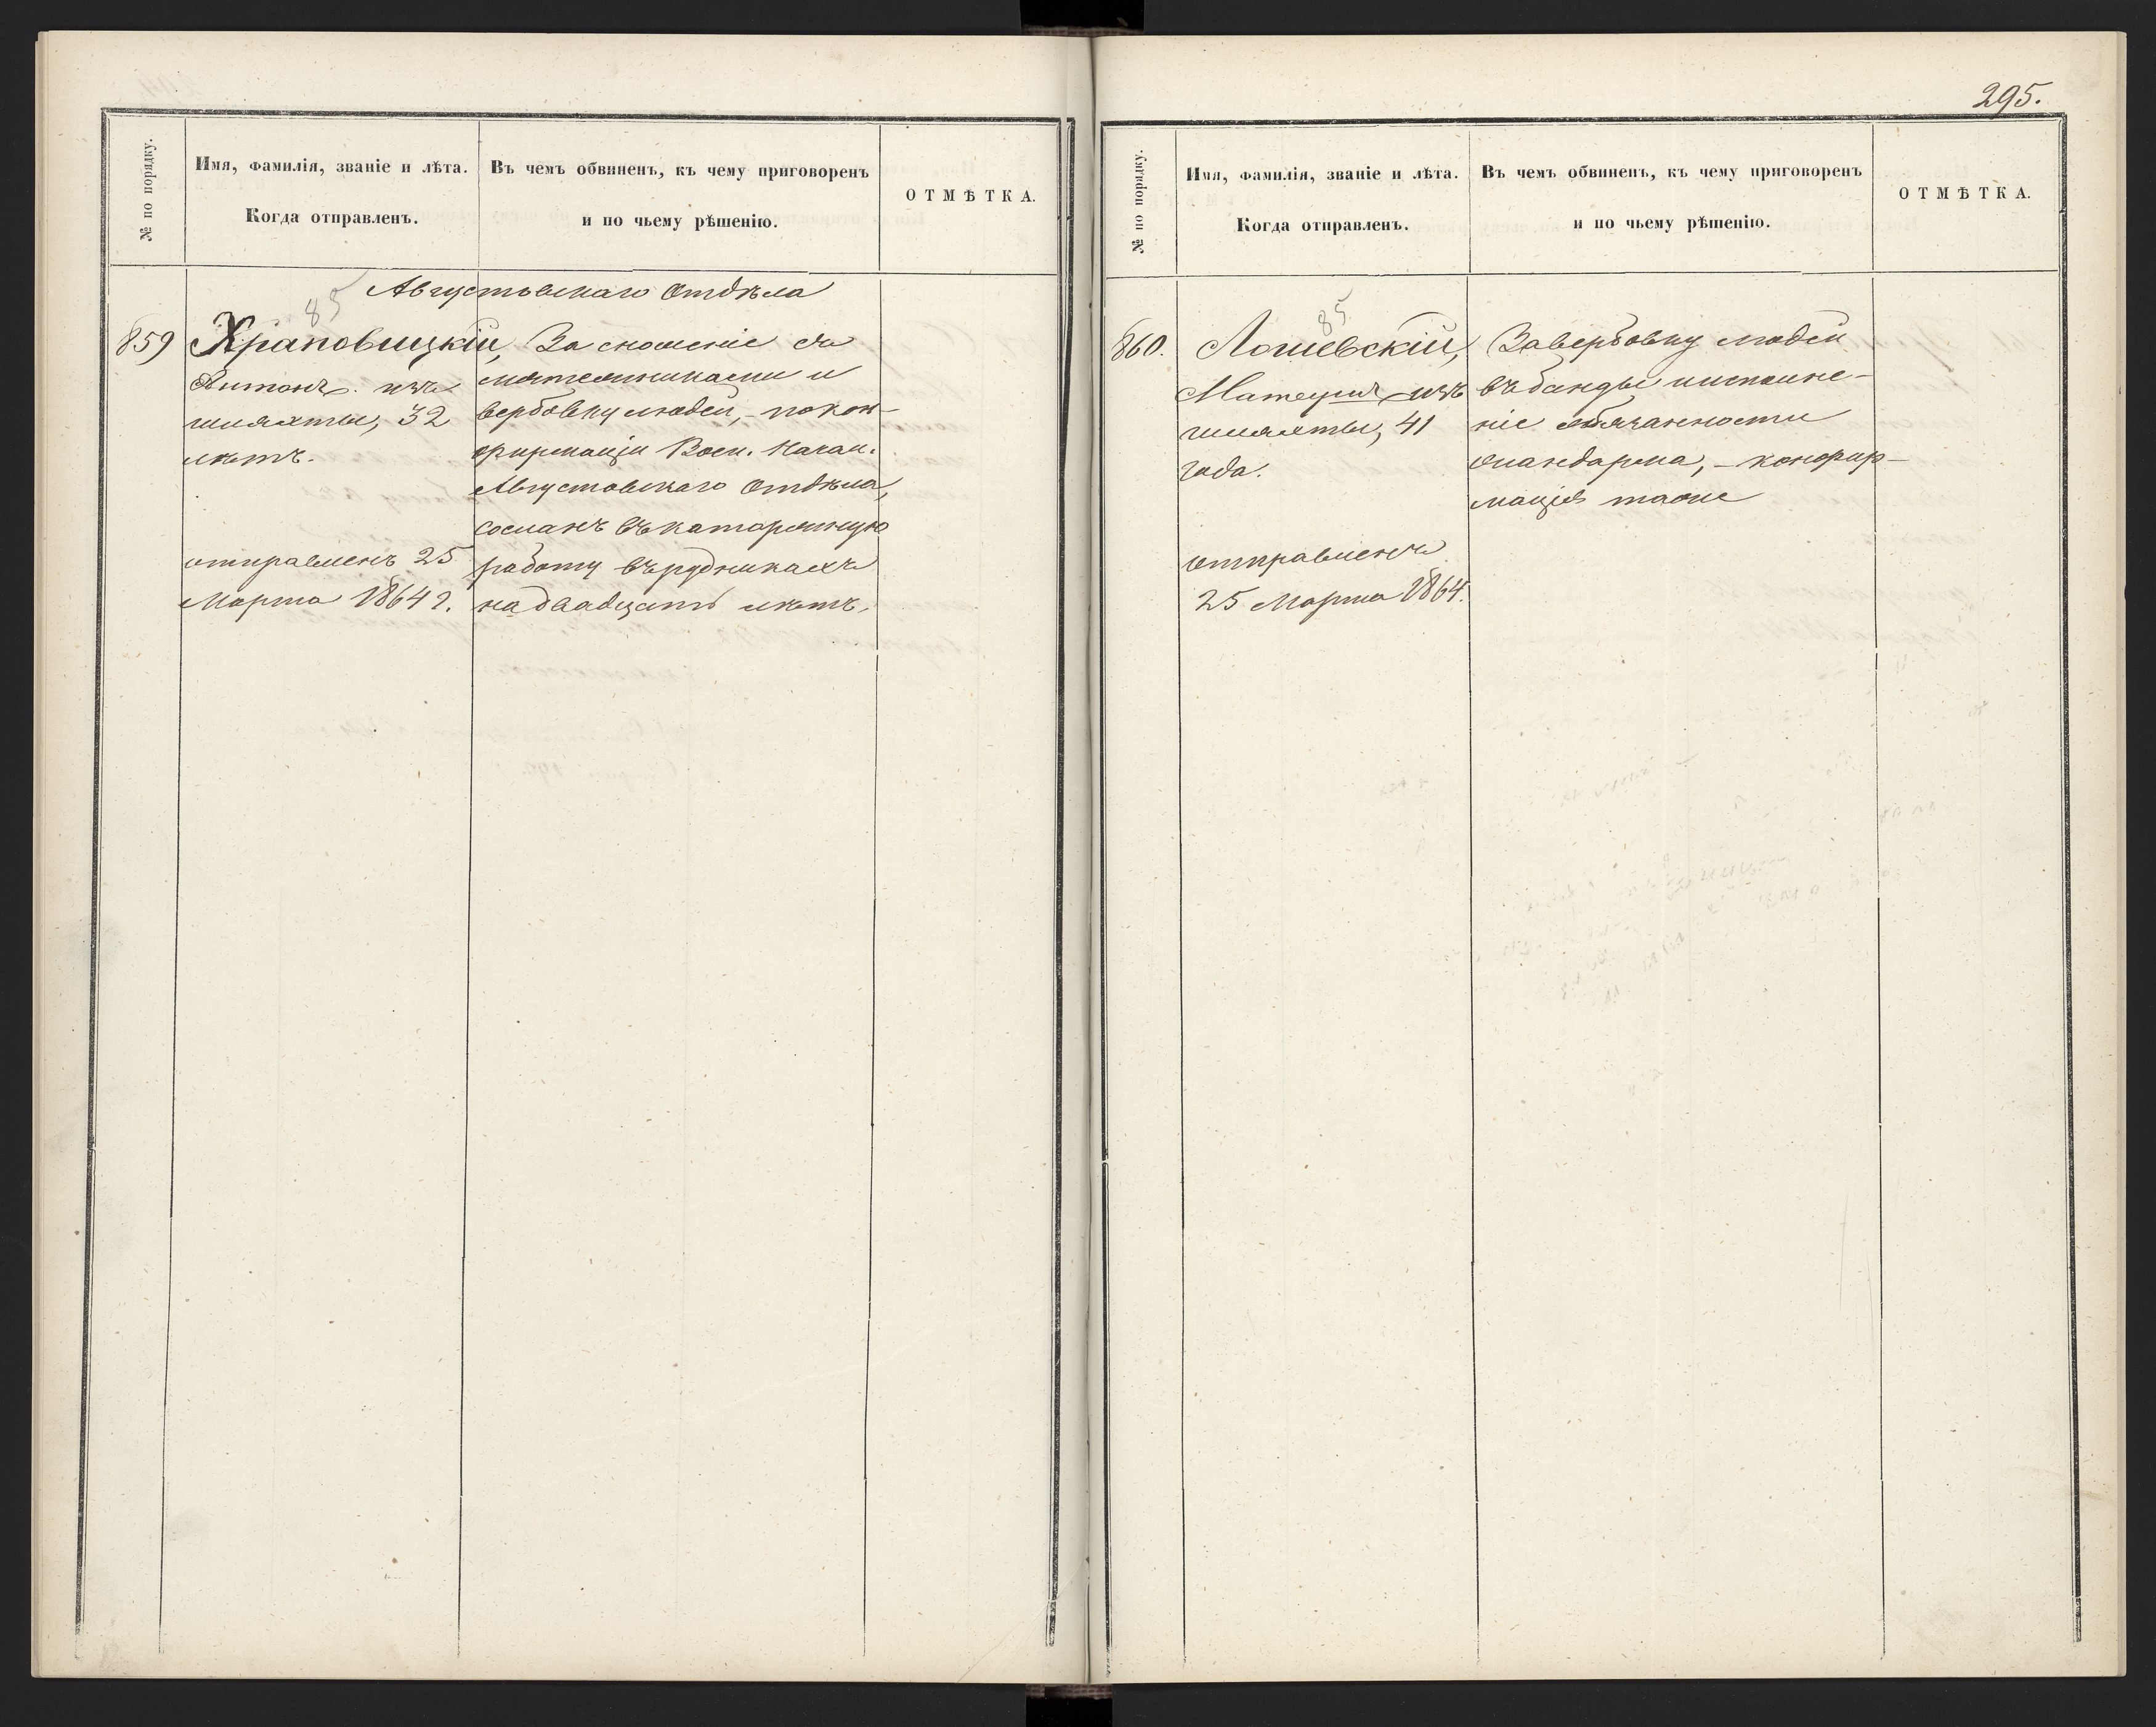 295.
№ по порядку.
Имя, фамилія, званіе и лѣта.
Когда отправленъ.
Въ чемъ обвиненъ, къ чему приговоренъ
и по чьему рѣшенію.
ОТМѢТКА.
Августовскаго Отдѣла
85
859
Храповицкій,
Антонъ. изъ
шляхты, 32
лѣтъ.
отправленъ 25
Марта 1864 г.
За сношеніе съ
мятежниками и
вербовку людей, - по кон-
фирмаціи Воен. Начал.
Августовскаго Отдѣла,
сосланъ въ каторжную
работу въ рудникахъ
на двадцать лѣтъ.
№ по порядку.
Имя, фамилія, званіе и лѣта.
Когда отправленъ.
Въ чемъ обвиненъ, къ чему приговоренъ
и по чьему рѣшенію.
ОТМѢТКА.
85
860.
Лошевскій,
Матеушъ изъ
шляхты, 41
года.
отправленъ
25 Марта 1864.
За вербовку людей
въ банды и исполне-
ніе обязанности
жандарма, - конфир-
мація таже